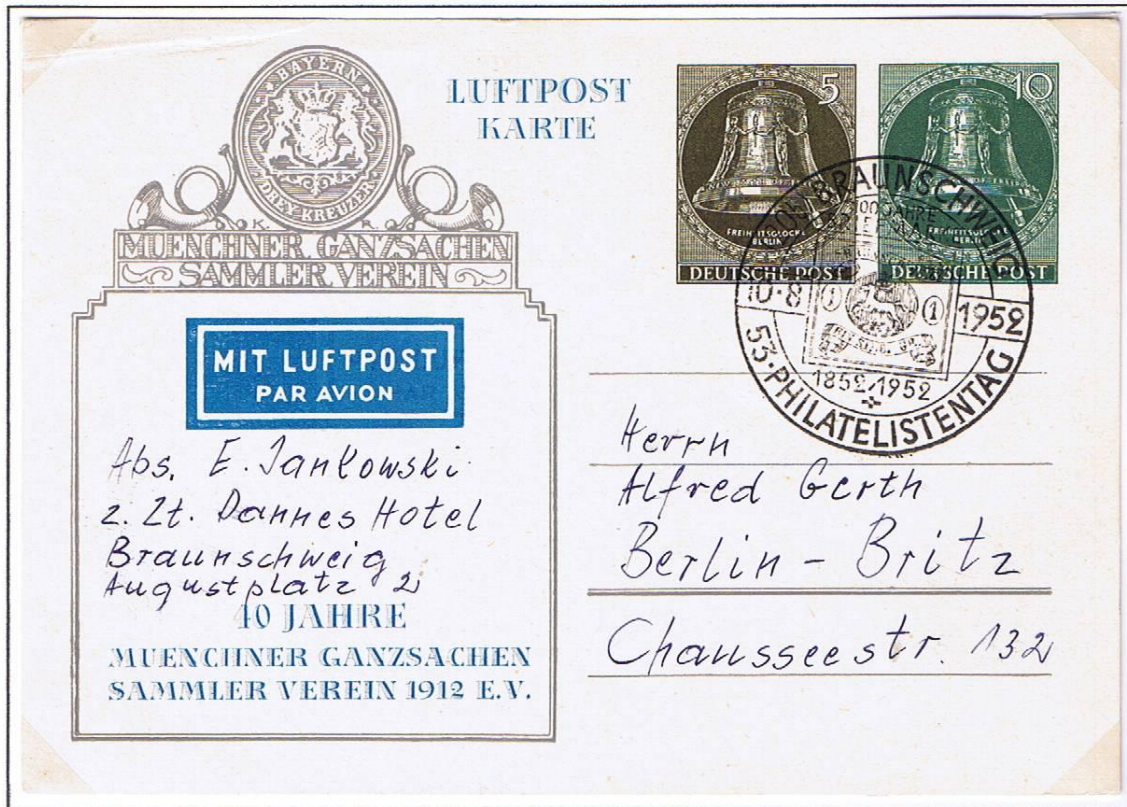 BAYERN
DREY KREUZER
K. R.
MUENCHNER GANZSACHEN
SAMMLER VEREIN
LUFTPOST
KARTE
5
FREIHEITSGLOCKE
BERLIN
DEUTSCHE POST
10
FREIHEITSGLOCKE
BERLIN
DEUTSCHE POST
BRAUNSCHWEIG
100 JAHRE
10.8
1952
1 1
1852-1952
53. PHILATELISTENTAG
MIT LUFTPOST
PAR AVION
Abs. E. Jankowski
z. Zt. Dannes Hotel
Braunschweig
Augustplatz 2
40 JAHRE
MUENCHNER GANZSACHEN
SAMMLER VEREIN 1912 E.V.
Herrn
Alfred Gerth
Berlin - Britz
Chausseestr. 132